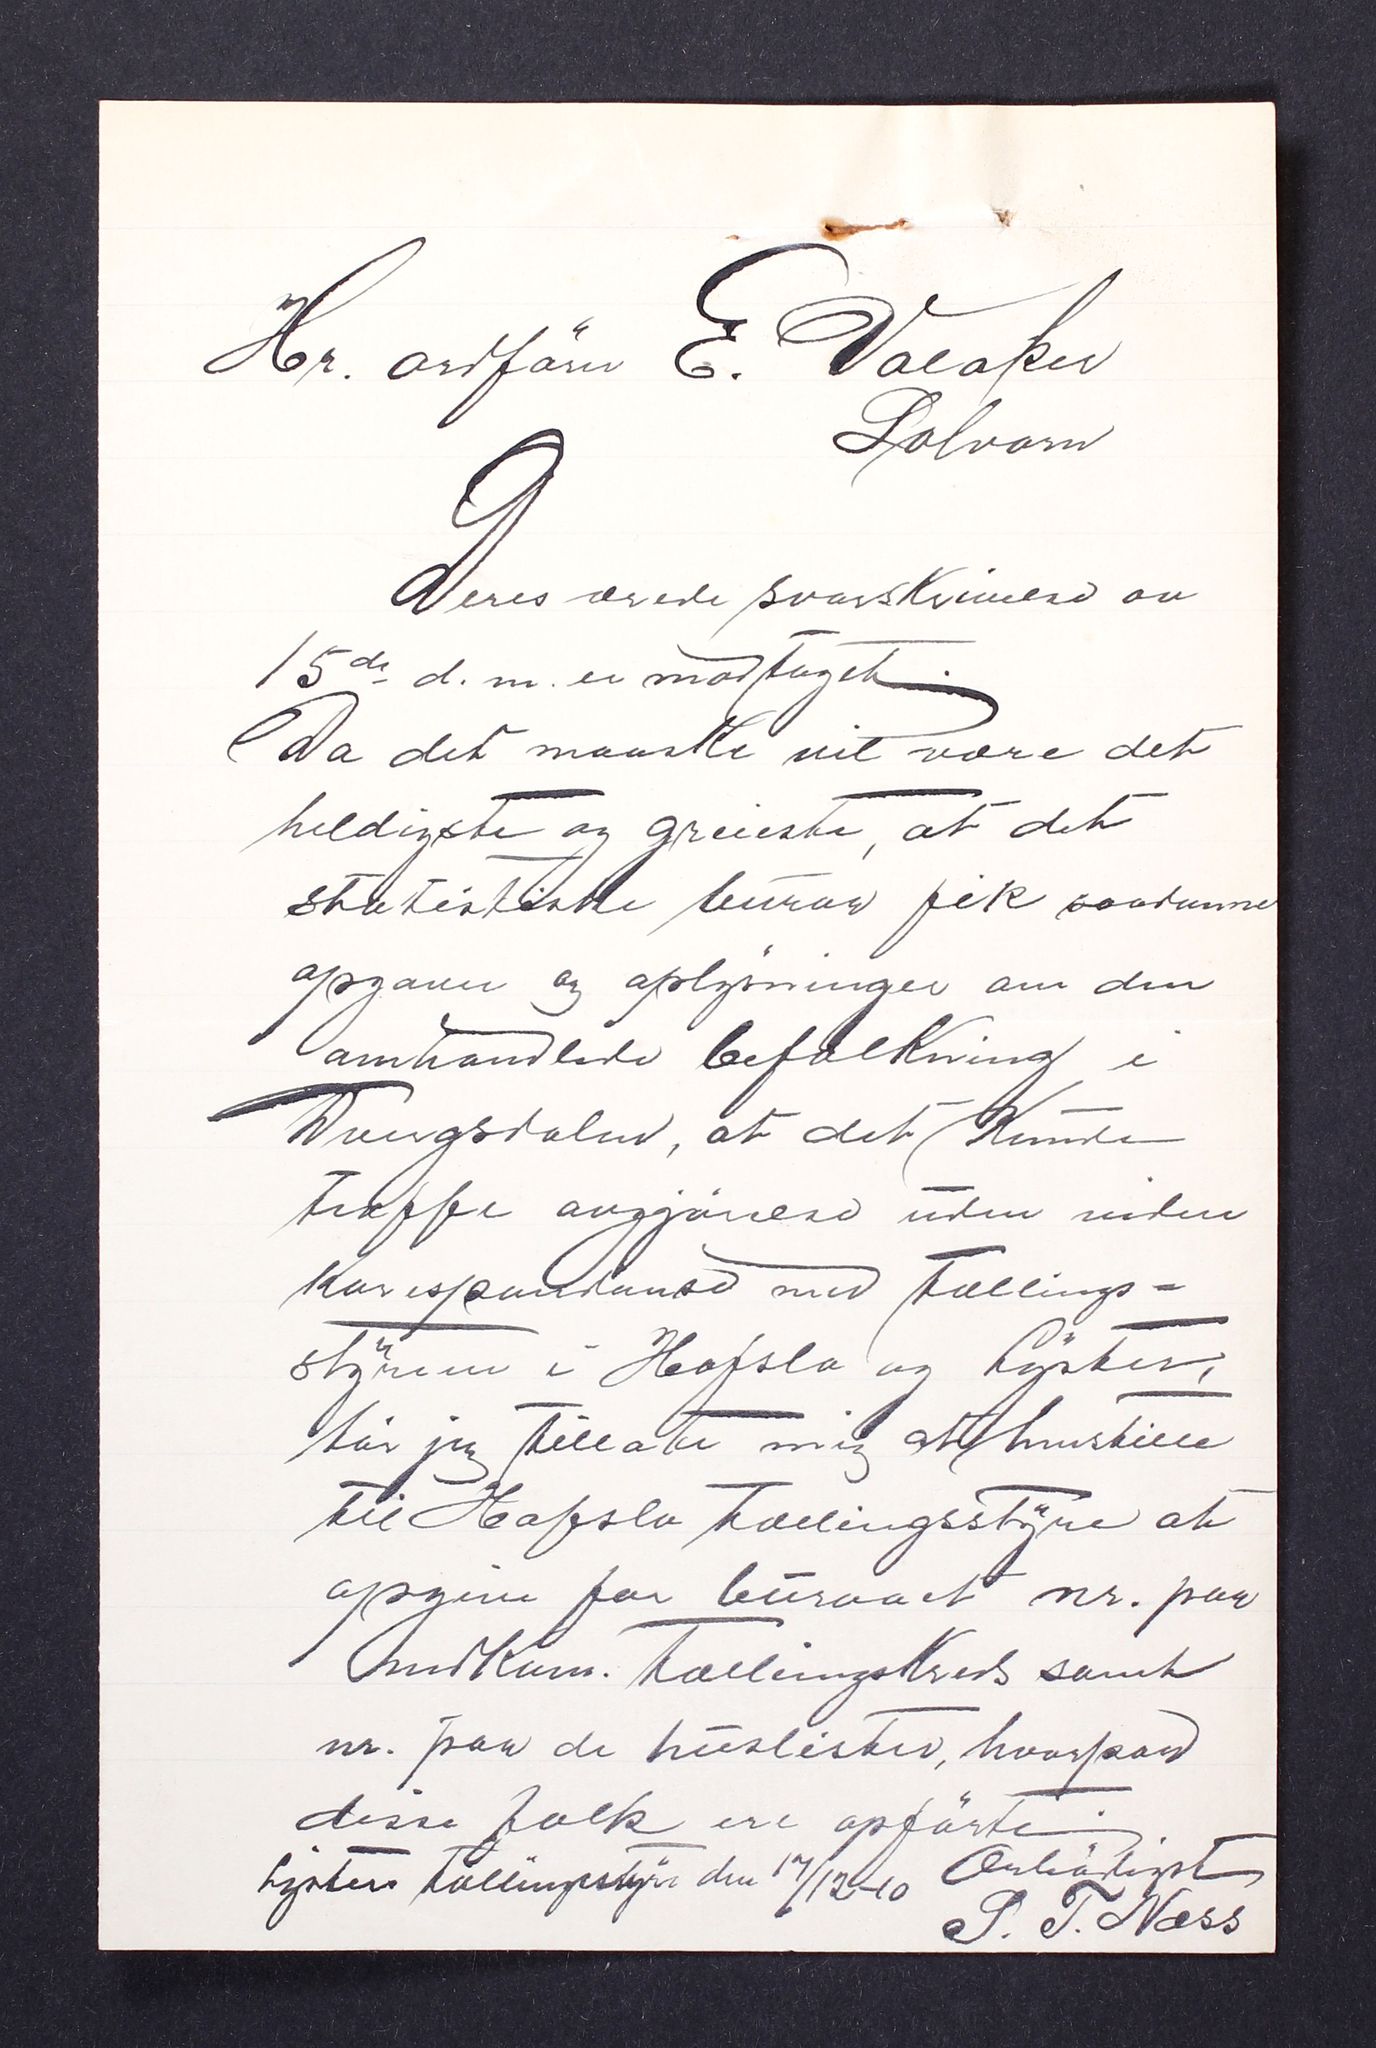 Hr. ordförer E. Valaker
Solvorn
Deres ærede svarskrivelse av
15de d. m. er modtaget.
Da det maaske vil være det
heldigste og greieste, at det
statistiske büraa fik saadanne
opgaver og oplysninger om den
omhandlede befolkning i
Dvergsdalen, at det künde
træffe avgjörelse üden viden
korespondanse med tællings-
styrene i Hafslo og Lyster,
tör jeg tillate mig at henstille
til Hafslo tællingsstyre at
opgive for büraaet nr. paa
vedkom. tællingskreds samt
nr. paa de hüslister, hvorpaa
disse folk ere opförte.
Lysters tællingsstyre den 17/12-10 Ærbödigst
S. T. Næss